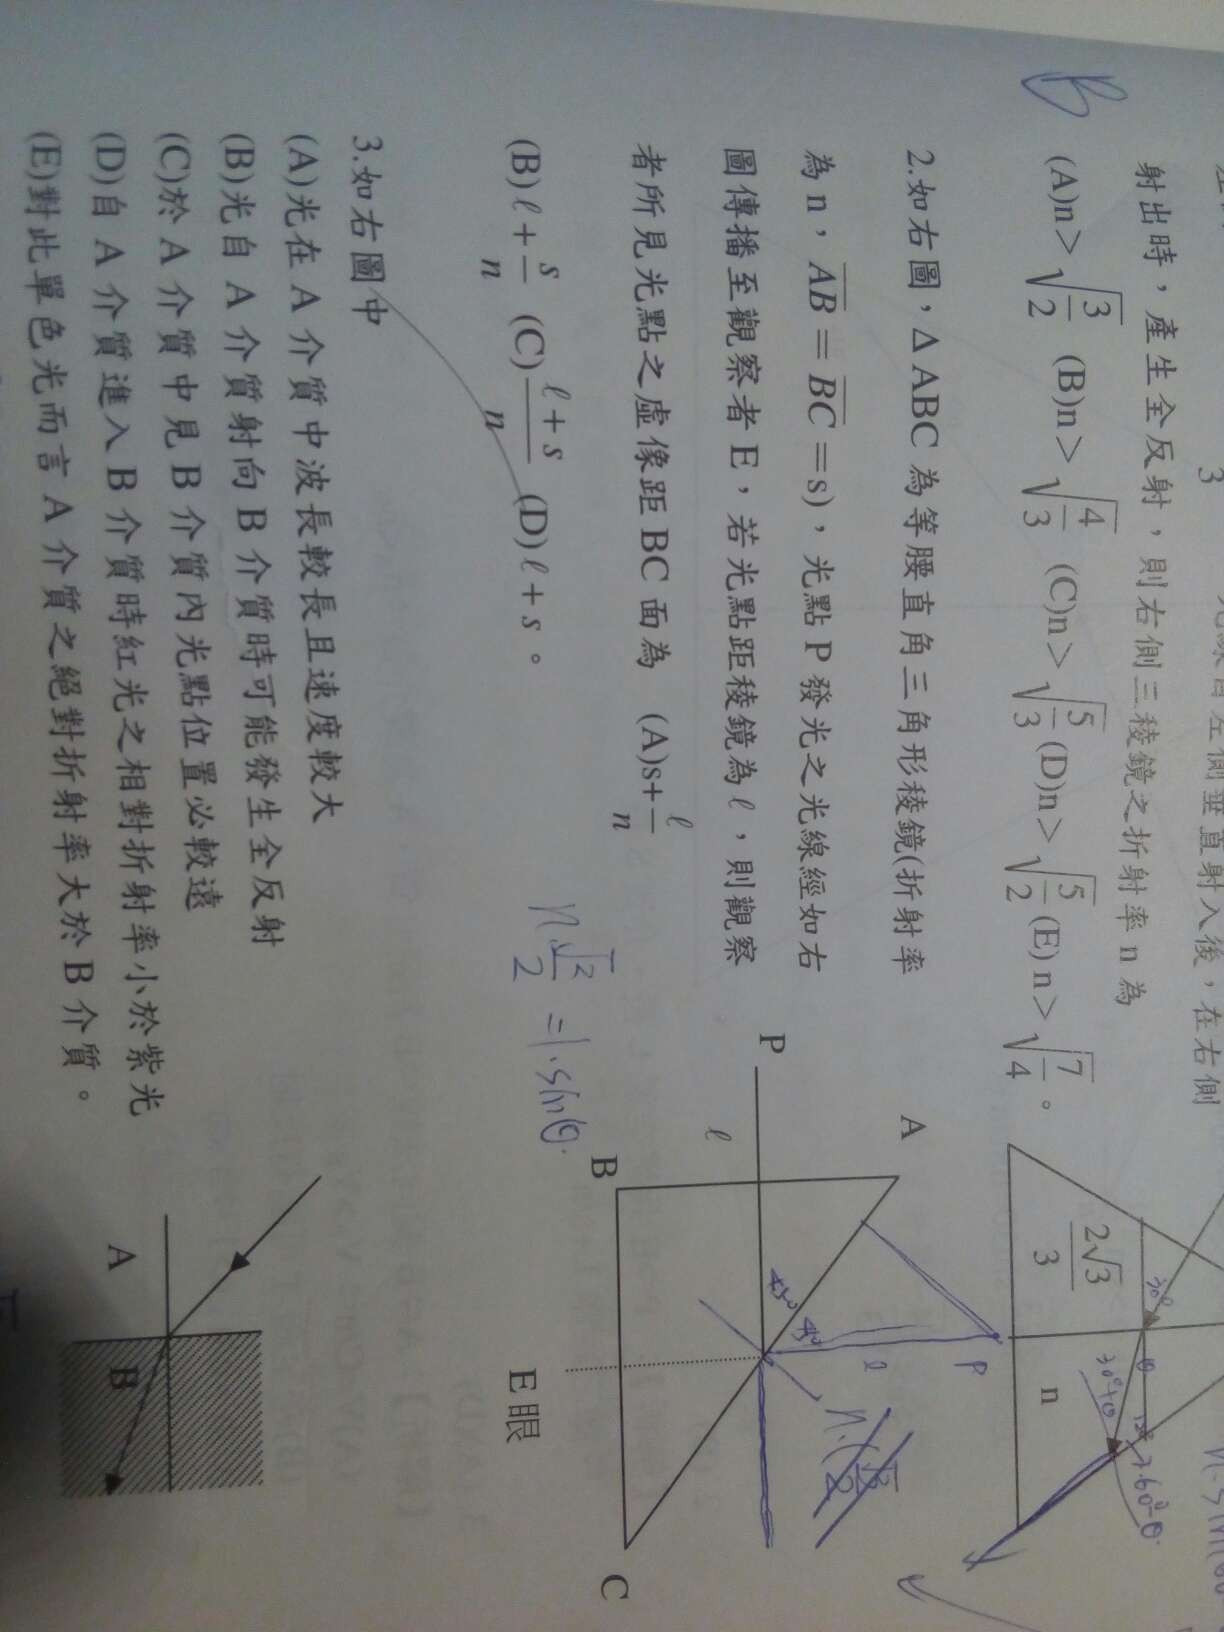 射出時，產生全反射，則右側三稜鏡之折射率 n 為
B
(A)n＞√(3/2) (B)n＞√(4/3) (C)n＞√(5/3) (D)n＞√(5/2) (E) n＞√(7/4)。
2√3/3
n
30°
θ
30°+θ
60°-θ
2.如右圖，ΔABC 為等腰直角三角形稜鏡(折射率
為 n，AB＝BC＝s)，光點 P 發光之光線經如右
圖傳播至觀察者 E，若光點距稜鏡為 ℓ，則觀察
者所見光點之虛像距 BC 面為 (A)s+ℓ/n
(B)ℓ+s/n (C)(ℓ+s)/n (D)ℓ+s。
P
ℓ
A
B
C
E 眼
45°
45°
P
ℓ
n·√2/2 =1·sinθ.
3.如右圖中
(A)光在 A 介質中波長較長且速度較大
(B)光自 A 介質射向 B 介質時可能發生全反射
(C)於 A 介質中見 B 介質內光點位置必較遠
(D)自 A 介質進入 B 介質時紅光之相對折射率小於紫光
(E)對此單色光而言 A 介質之絕對折射率大於 B 介質。
A
B